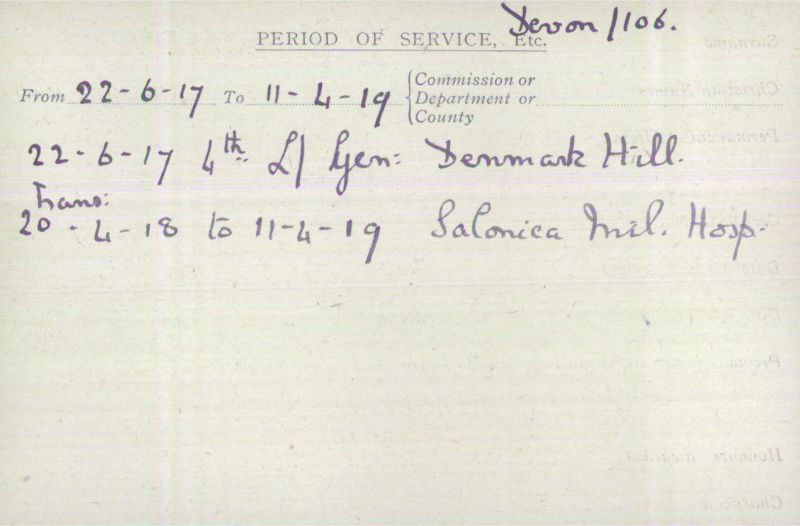 Devon/106.
PERIOD OF SERVICE, Etc.
From 22-6-17 To 11-4-19 {Commission or
Department or
County
22-6-17 4th L/ Gen: Denmark Hill.
Trans:
20-4-18 to 11-4-19 Salonica Mil. Hosp.